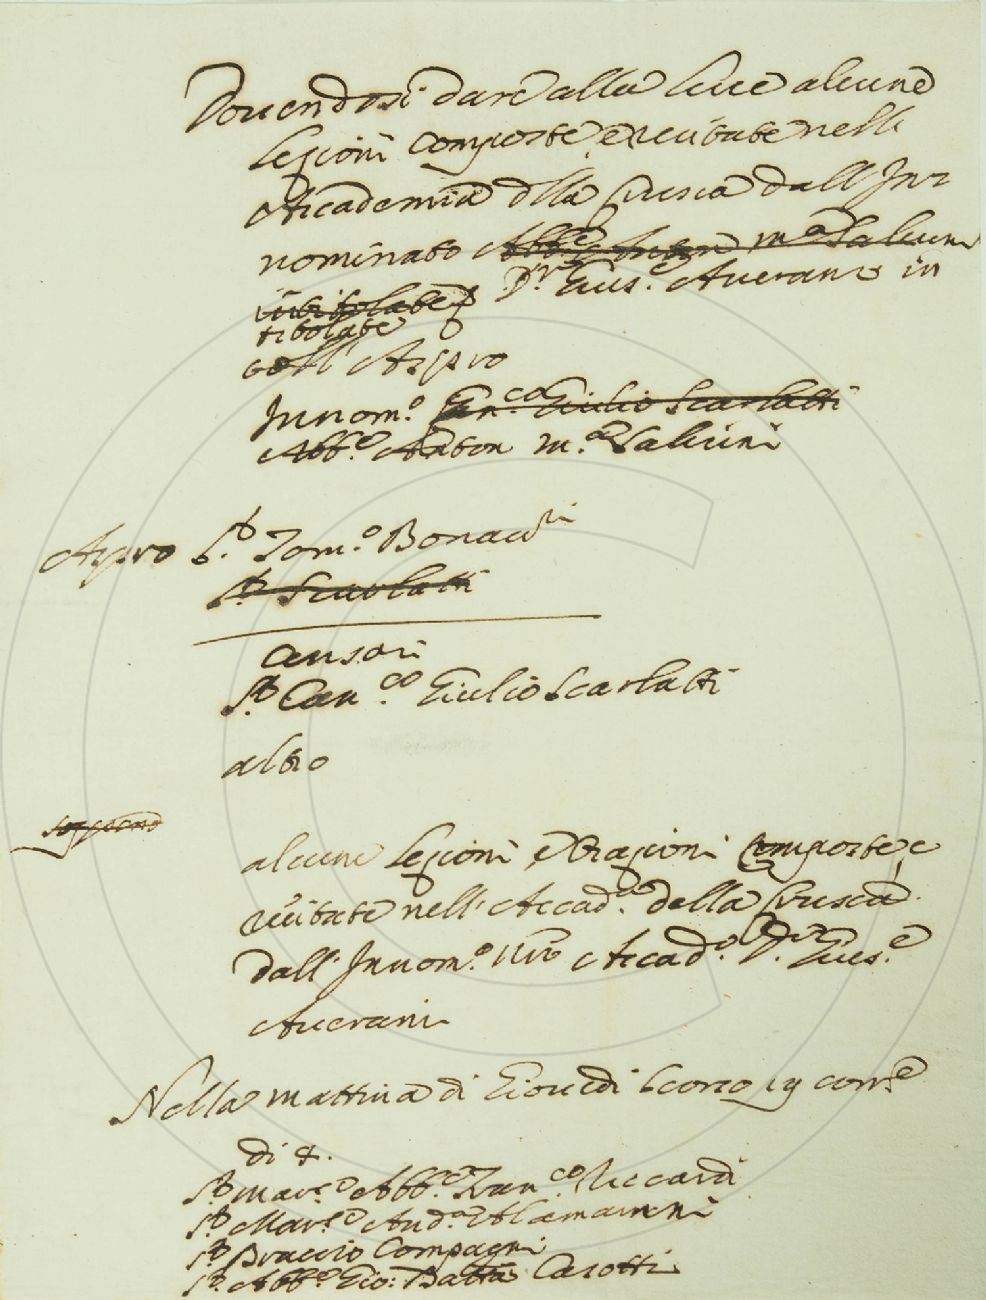 Dovendosi dare alla luce alcune
Lezzioni composte, e recitate nell
Accademia dlla Crusca dall' Inn
nominato Abb.e Anton M.a Salvini
intitolate
D.r Gius.e Averani in
titolate
Innom.o Can.co Giulio Scarlatti
Abb.e Anton M.a Salvini
S.r Tom.o Bonav.ri
S.r Scarlatti
Censori
S.r Can.co Giulio Scarlatti
altro
alcune Lezioni, e Orazioni composte, e
recitate nell' Accad.a della Crusca
dall' Innom.o Accad.o D.r Gius.e
Averani
Nella mattina di Giovedi scorso 19 corr.e
di
S.r Mar.e Abb.e Fran.co Riccardi
S.r Mar.e And.a Alamanni
S.r Braccio Compagni
S.r Abb.e Gio: Batta Casotti